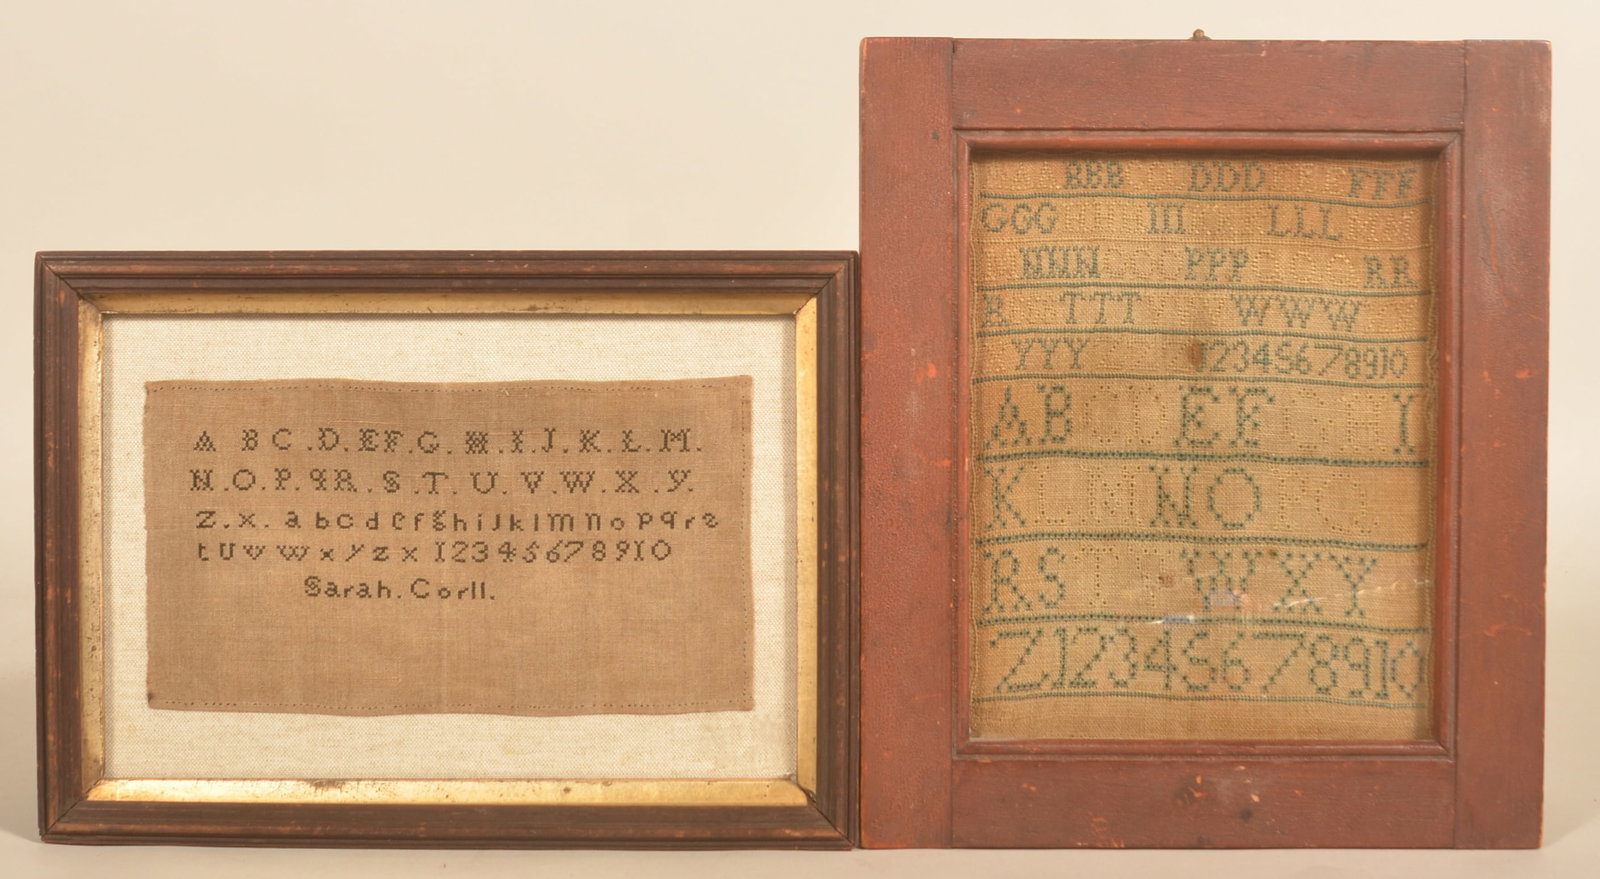 A B C . D . E F . G . H . I . J . K . L . M .
N . O . P . q R . S . T . U . V . W . X . y .
Z . x . a b c d e f g h i J k l m n o p q r s
t U v w x y z x 1 2 3 4 5 6 7 8 9 1 0
Sarah . Corll .
BBB DDD FFF
GGG III LLL
NNN PPP RR
R TTT WWW
YYY 12345678910
A B C D E F G H I
K L M N O P Q
R S T V W X Y
Z 1 2 3 4 5 6 7 8 9 1 0